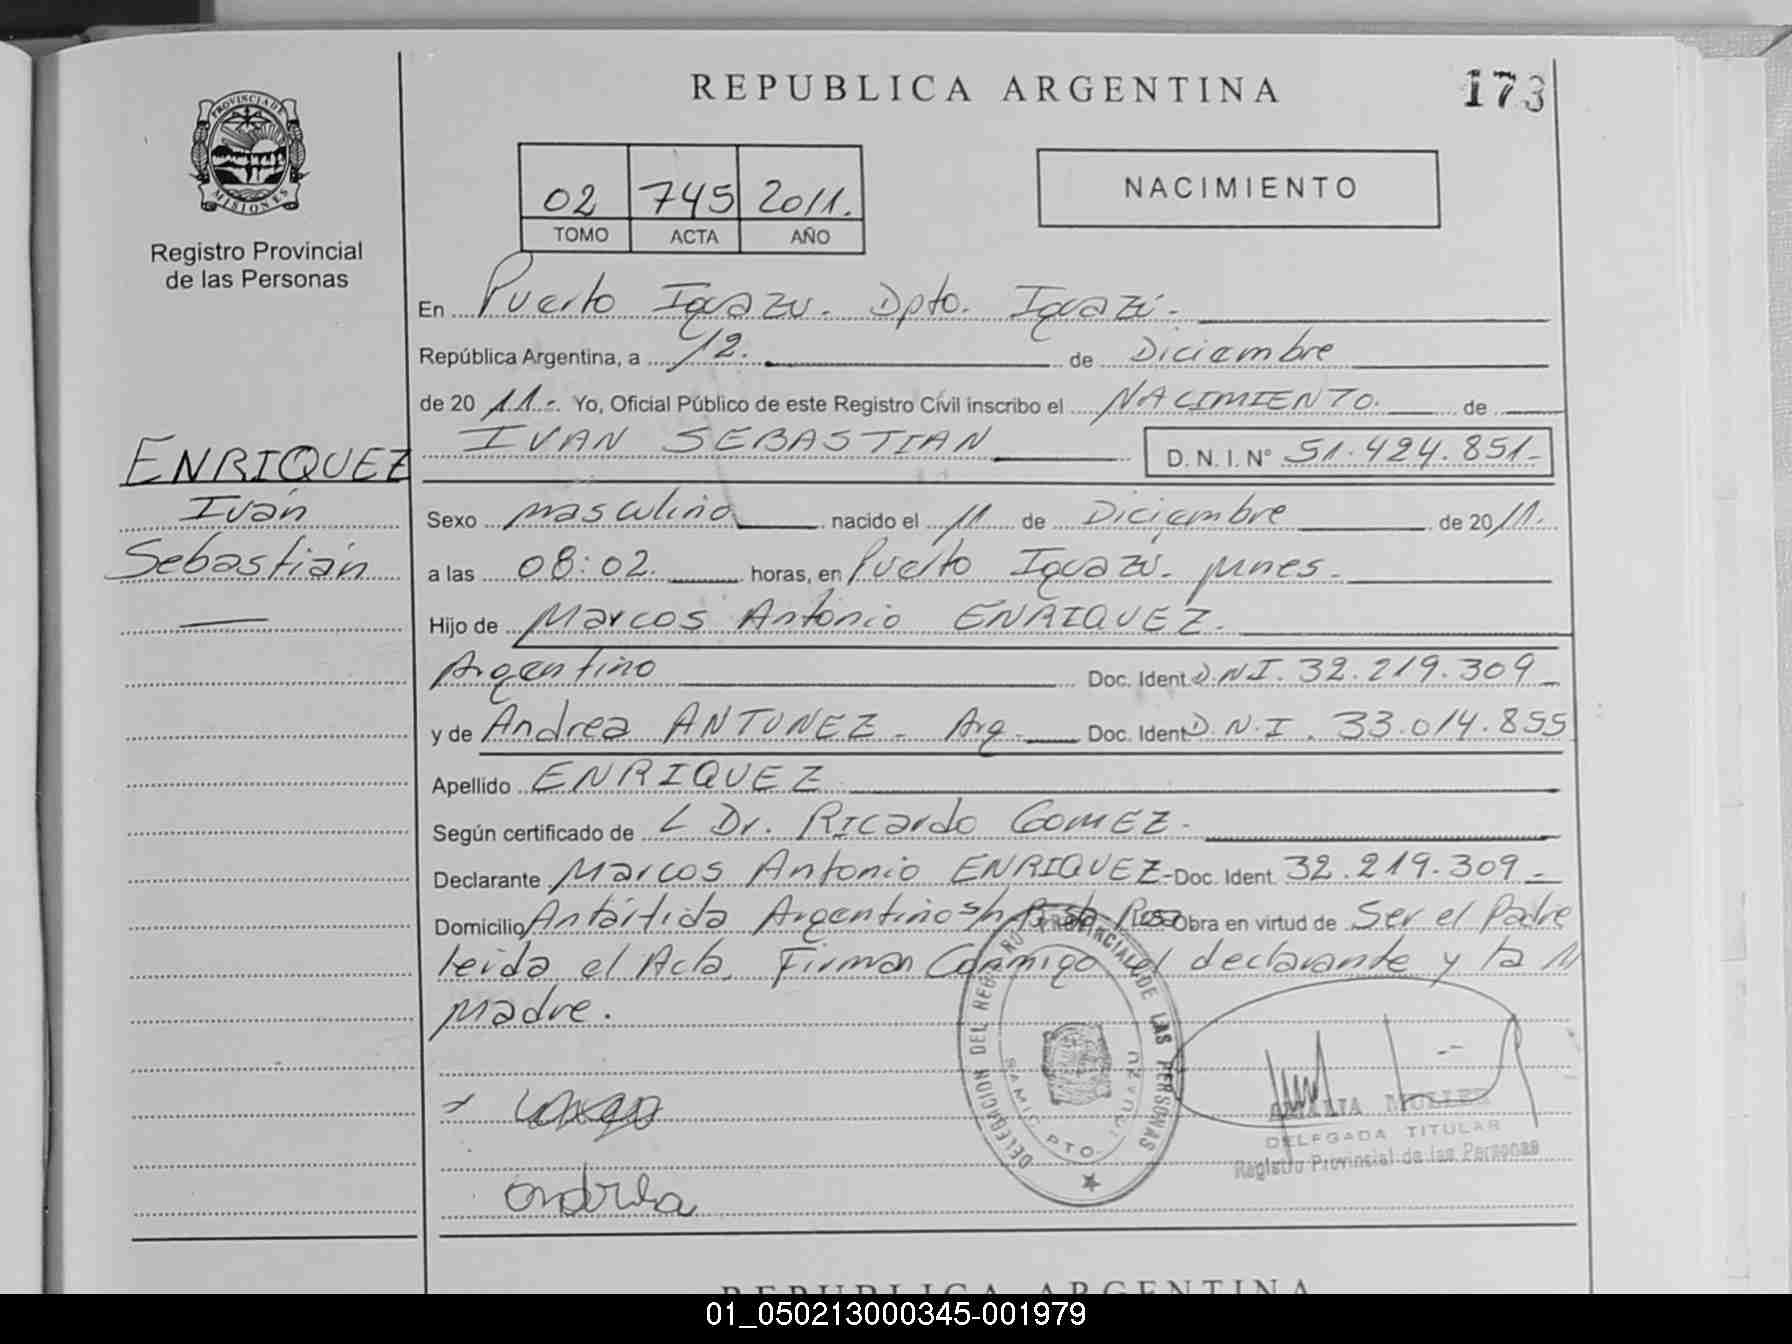 REPUBLICA ARGENTINA
173
PROVINCIA DE
MISIONES
Registro Provincial
de las Personas
02 745 2011.
TOMO ACTA AÑO
NACIMIENTO
En Puerto Iguazu. Dpto. Iguazú.
República Argentina, a 12. de Diciembre
de 2011. Yo, Oficial Público de este Registro Civil inscribo el NACIMIENTO. de
IVAN SEBASTIAN D. N. I. N° 51.424.851-
ENRIQUEZ
Iván
Sebastián
Sexo masculino nacido el 11 de Diciembre de 2011.
a las 08:02. horas, en Puerto Iguazú. mnes.
Hijo de Marcos Antonio ENRIQUEZ.
Argentino Doc. Ident. D.N.I. 32.219.309
y de Andrea ANTUNEZ - Arg. Doc. Ident. D.N.I. 33.014.855
Apellido ENRIQUEZ
Según certificado de L Dr. Ricardo GOMEZ -
Declarante Marcos Antonio ENRIQUEZ - Doc. Ident. 32.219.309
Domicilio Antártida Argentino s/n Rosa Obra en virtud de Ser el Padre
leida el Acta, Firman Conmigo el declarante y la
Madre.
DELEGACION DEL REG PROVINCIAL DE LAS PERSONAS
SAMIC PTO. IGUAZU
AMALIA MULLER
DELEGADA TITULAR
Registro Provincial de las Personas
Andrea
REPUBLICA ARGENTINA
01_050213000345-001979